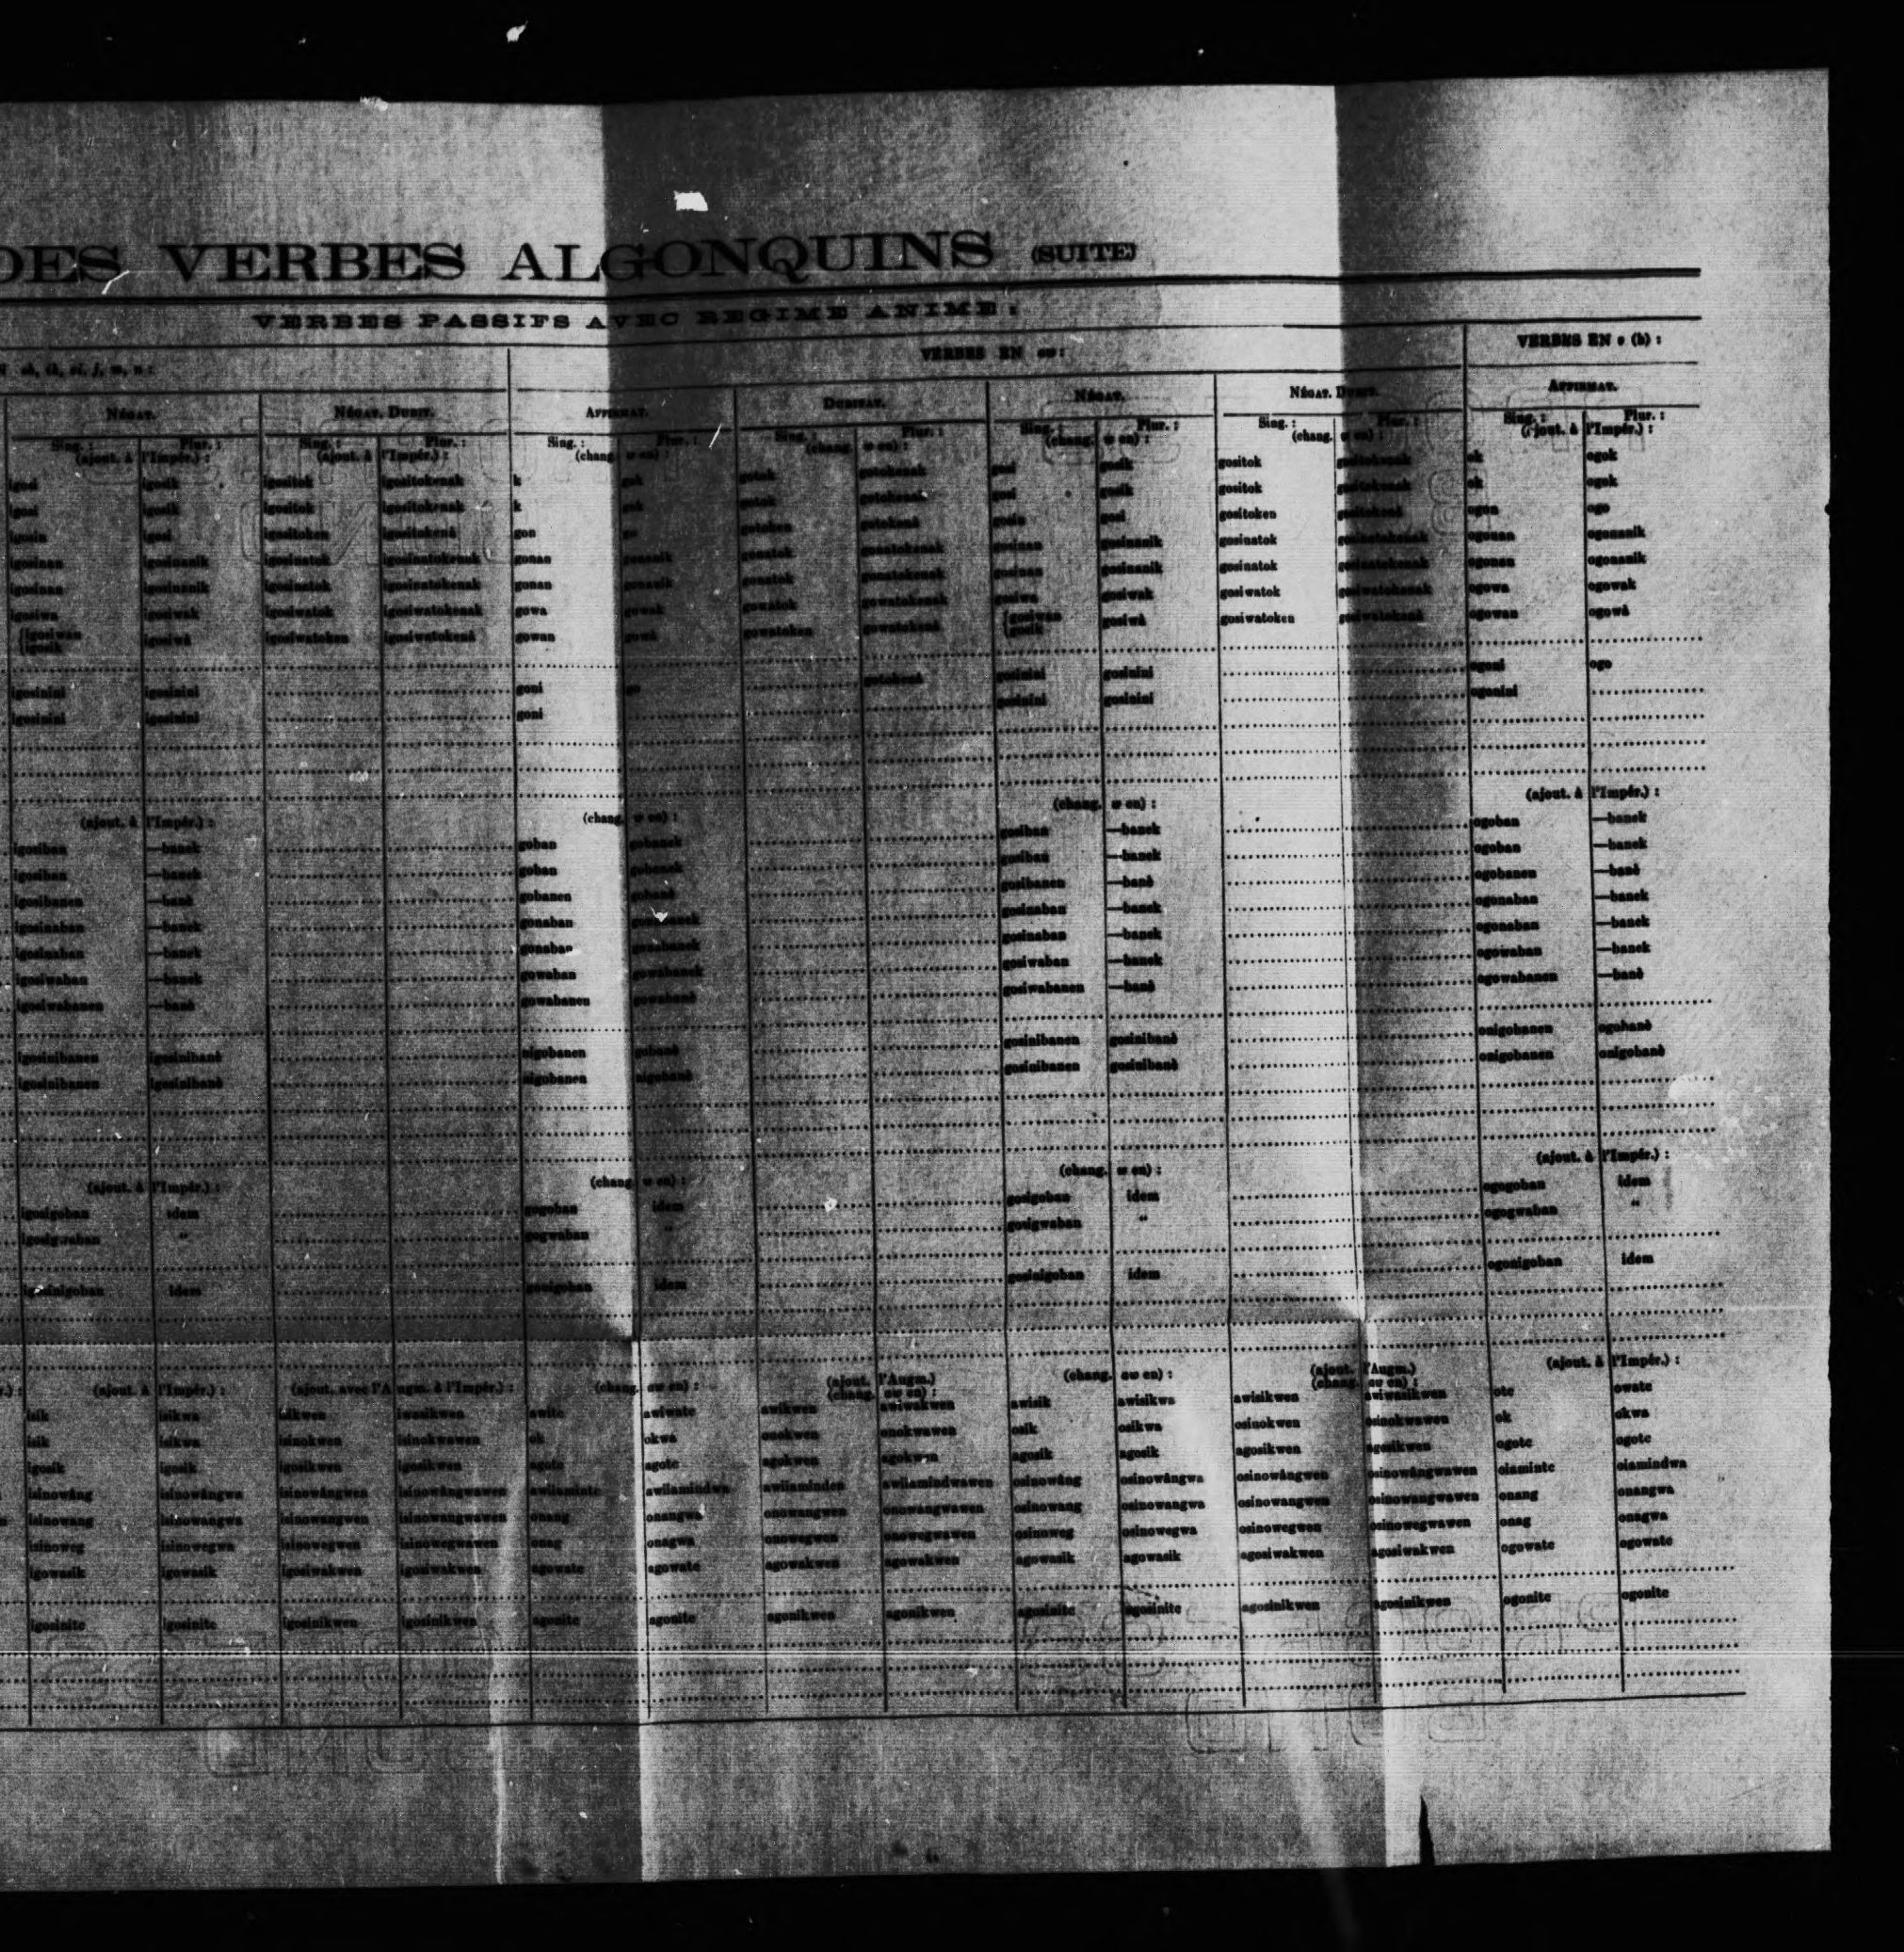 DES VERBES ALGONQUINS (SUITE)
VERBES PASSIFS AVEC REGIME ANIME :
ch, ih, ci, j, m, n : VERBES EN aw : VERBES EN o (b) :
NÉGAT. NÉGAT. DUBIT. AFFIRMAT. DUBITAT. NÉGAT. NÉGAT. DUBIT. AFFIRMAT.
Sing. : Plur. : Sing. : Plur. : Sing. : Plur. : Sing. : Plur. : Sing. : Plur. : Sing. : Plur. : Sing. : Plur. :
(ajout. à l'Impér.) : (ajout. à l'Impér.) : (chang. w en) : (chang. w en) : (chang. w en) : (chang. w en) : (ajout. à l'Impér.) :
igosi igosik igositok igositokenak k gok gotok gotokenak gosi gosik gositok gositokenak ok ogok
igosi igosik igositok igositokenak k gok gotok gotokenak gosi gosik gositok gositokenak ok ogok
igosin igosi igositoken igositokenè gon go gotoken gotokenè gosin gosi gositoken gositokenè ogon ogo
igosinan igosinanik igosinatok igosinatokenak gonan gonanik gonatok gonatokenak gosinan gosinanik gosinatok gosinatokenak ogonan ogonanik
igosinan igosinanik igosinatok igosinatokenak gonan gonanik gonatok gonatokenak gosinan gosinanik gosinatok gosinatokenak ogonan ogonanik
igosiwa igosiwak igosiwatok igosiwatokenak gowa gowak gowatok gowatokenak gosiwa gosiwak gosiwatok gosiwatokenak ogowa ogowak
{igosiwan igosiwà igosiwatoken igosiwatokenè gowan gowà gowatoken gowatokenè {gosiwan gosiwà gosiwatoken gosiwatokenè ogowan ogowà
{igosik {gosik
igosinini igosinini goni go gotokenè gosinini gosinini ogoni ogo
igosinini igosinini goni gosinini gosinini ogonini
(ajout. à l'Impér.) : (chang. w en) : (chang. w en) : (ajout. à l'Impér.) :
igosiban —banek goban gobanek gosiban —banek ogoban —banek
igosiban —banek goban gobanek gosiban —banek ogoban —banek
igosibanen —banè gobanen gobanè gosibanen —banè ogobanen —banè
igosinaban —banek gonaban gonabanek gosinaban —banek ogonaban —banek
igosinaban —banek gonaban gonabanek gosinaban —banek ogonaban —banek
igosiwaban —banek gowaban gowabanek gosiwaban —banek ogowaban —banek
igosiwabanen —banè gowabanen gowabanè gosiwabanen —banè ogowabanen —banè
igosinibanen igosinibanè nigobanen gobanè gosinibanen gosinibanè onigobanen ogobanè
igosinibanen igosinibanè nigobanen nigobanè gosinibanen gosinibanè onigobanen onigobanè
(ajout. à l'Impér.) : (chang. w en) : (chang. w en) : (ajout. à l'Impér.) :
igosigoban idem gogoban idem gosigoban idem ogogoban idem
igosigwaban “ gogwaban “ gosigwaban “ ogogwaban “
igosinigoban idem gonigoban idem gosinigoban idem ogonigoban idem
(ajout. à l'Impér.) : (ajout. avec l'Augm. à l'Impér.) : (chang. aw en) : (ajout. l'Augm.) (chang. aw en) : (chang. aw en) : (ajout. l'Augm.) (chang. aw en) : (ajout. à l'Impér.) :
isik isikwa isikwen iwasikwen awite awiwate awikwen awiwakwen awisik awisikwa awisikwen awiwasikwen ote owate
isik isikwa isinokwen isinokwawen ok okwa onokwen onokwawen osik osikwa osinokwen osinokwawen ok okwa
igosik igosik igosikwen igosikwen agote agote agokwen agokwen agosik agosik agosikwen agosikwen ogote ogote
isinowâng isinowângwa isinowângwen isinowângwawen awilaminte awilamindwa awilaminden awilamindwawen osinowâng osinowângwa osinowângwen osinowângwawen oiaminte oiamindwa
isinowang isinowangwa isinowangwen isinowangwawen onang onangwa onowangwen onowangwawen osinowang osinowangwa osinowangwen osinowangwawen onang onangwa
isinoweg isinowegwa isinowegwen isinowegwawen onag onagwa onowegwen onowegwawen osinoweg osinowegwa osinowegwen osinowegwawen onag onagwa
igowasik igowasik igosiwakwen igosiwakwen agowate agowate agowakwen agowakwen agowasik agowasik agosiwakwen agosiwakwen ogowate ogowate
igosinite igosinite igosinikwen igosinikwen agonite agonite agonikwen agonikwen agosinite agosinite agosinikwen agosinikwen ogonite ogonite